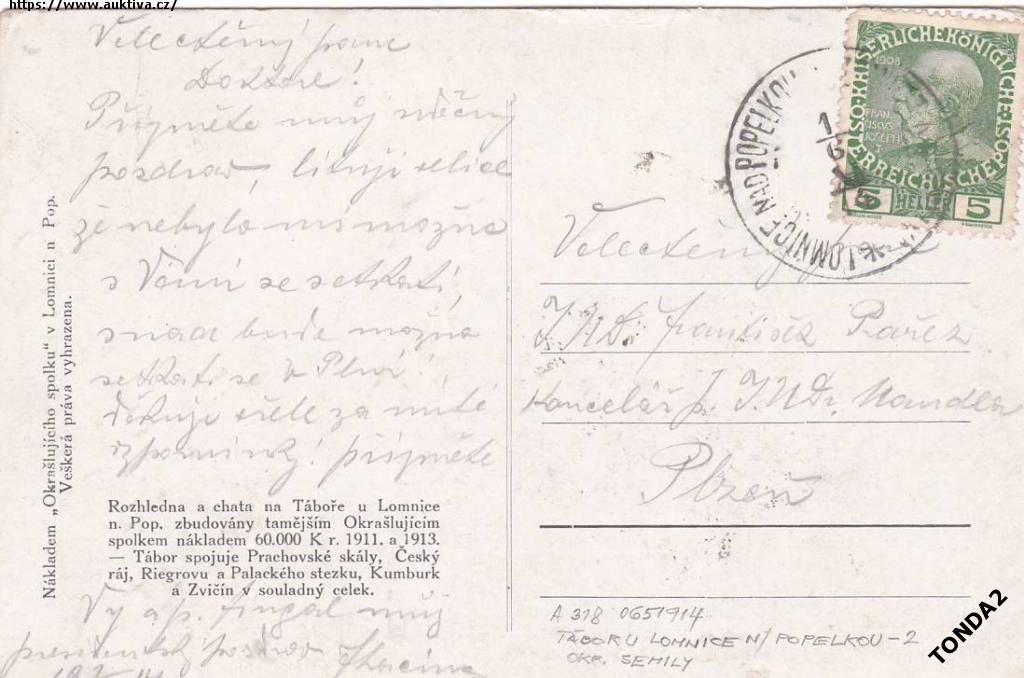 https://www.auktiva.cz/
Velectěný pane
Doktore!
Přijměte můj vděčný
pozdrav, lituji velice
že nebylo mi možno
s Vámi se setkati,
snad bude možno
setkati se v Plzni!
Děkuji vřele za milé
vzpomínky! přijměte
Rozhledna a chata na Táboře u Lomnice
n. Pop. zbudovány tamějším Okrašlujícím
spolkem nákladem 60.000 K r. 1911. a 1913.
— Tábor spojuje Prachovské skály, Český
ráj, Riegrovu a Palackého stezku, Kumburk
a Zvičín v souladný celek.
můj
pozdrav
Nákladem „Okrašlujícího spolku“ v Lomnici n Pop.
Veškerá práva vyhrazena.
LOMNICE NAD POPELKOU
KAISERLICHE KÖNIGLICHE
ÖSTERREICHISCHE POST
1908
FRAN
CISCVS
JOSEPH I
5 HELLER 5
Velectěný
JUDr. František Pařez
Kancelář p. JUDr. Mandla
Plzeň
A 318 0651914
TÁBOR U LOMNICE N/ POPELKOU - 2
OKR. SEMILY
TONDA2